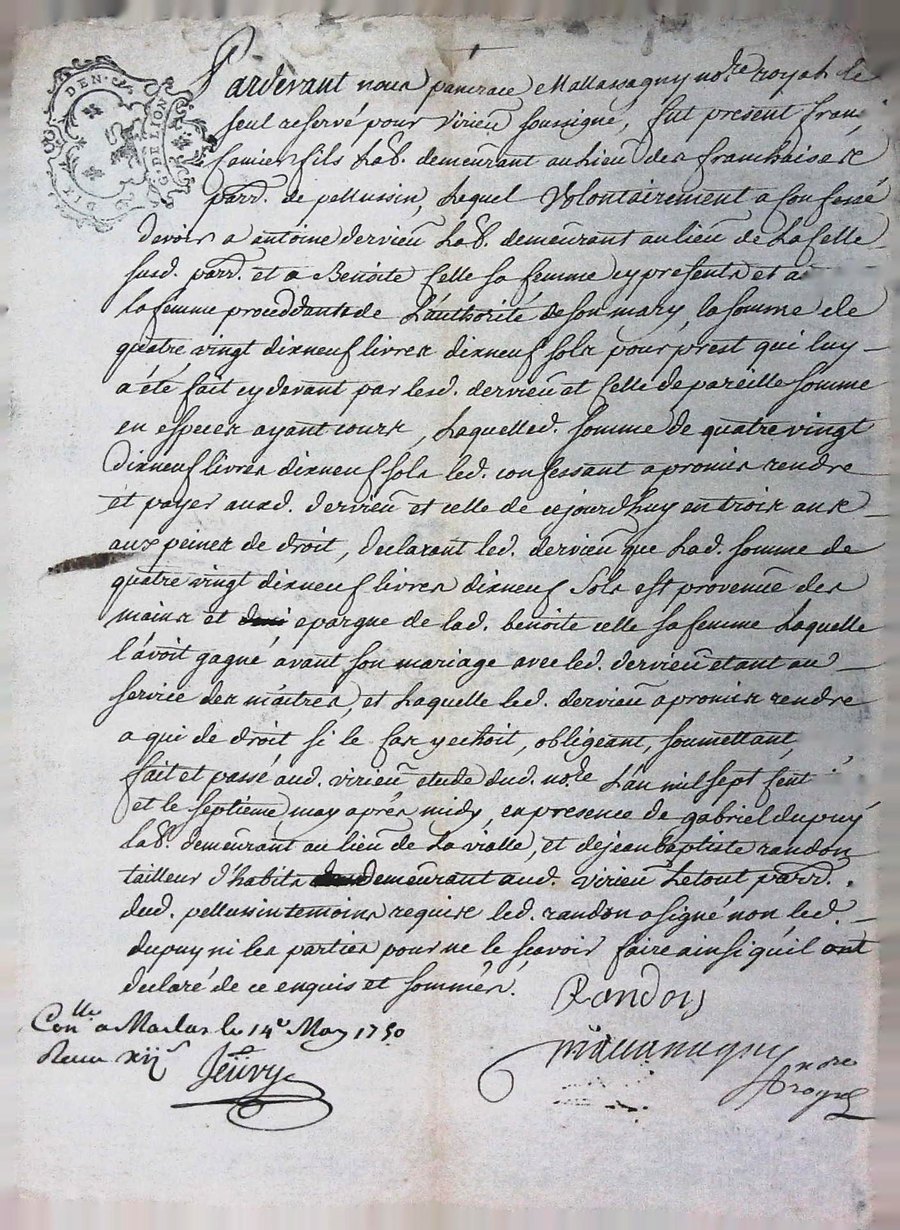 SIX DEN. G. DE LION
Pardevant nous pancrace Mallassagny no.re royal le
seul reservé pour virieu soussigné, fut present fran
fils Lab. demeurant au lieu des franchises
parr. de pellussin, Lequel Volontairement a confessé
devoir a antoine dervieu Lab. demeurant au lieu de La Celle
susd. parr. et a Benoite Celle sa femme cy presents et a
la femme proceddante de L'authorité de son mary, la somme de
quatre vingt dixneuf livres dixneuf sols pour prest qui luy
a été fait cy devant par lesd. dervieu et Celle de pareille somme
en especes ayant cours, Laquelled. somme de quatre vingt
dixneuf livres dixneuf sols led. confessant a promis rendre
et payer auxd. dervieu et celle de cejourdhuy en trois ans
aux peines de droit, declarant led. dervieu que Lad. somme de
quatre vingt dixneuf livres dixneuf sols est provenue des
mains et epargne de lad. benoite celle sa femme Laquelle
l'avoit gagné avant son mariage avec led. dervieu etant au
service des maitres, et Laquelle led. dervieu a promis rendre
a qui de droit si le cas y echoit, obligeant, soumettant,
fait et passé aud. virieu etude dud. no.re L'an mil sept cent
et le septieme may après midy, en presence de gabriel dupuy
lab. demeurant au lieu de La vialle, et de jean baptiste randon
tailleur d'habits demeurant aud. virieu Le tout parr.
dud. pellussin temoins requis led. randon a signé non led.
dupuy ni les parties pour ne le scavoir faire ainsi qu'il ont
declaré de ce enquis et sommés.
Randon
Con.lle a Maclas le 14e May 1750
Mallassagny no.re royal
Receu xij s
Jeüvy